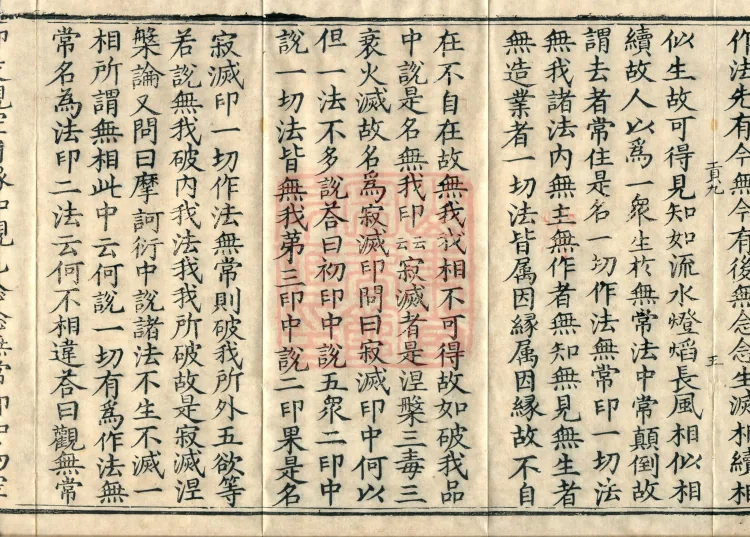 作法先有今無今有後無念念生滅相續相
貢九
王
似生故可得見知如流水燈焰長風相似相
續故人以爲一衆生於無常法中常顛倒故
謂去者常住是名一切作法無常印一切法
無我諸法内無主無作者無知無見無生者
無造業者一切法皆属因縁属因縁故不自
在不自在故無我我相不可得故如破我品
中説是名無我印云云寂滅者是涅槃三毒三
衰火滅故名爲寂滅印問曰寂滅印中何以
但一法不多説荅曰初印中説五衆二印中
説一切法皆無我第三印中説二印果是名
寂滅印一切作法無常則破我所外五欲等
若説無我破内我法我我所破故是寂滅涅
槃論又問曰摩訶衍中説諸法不生不滅一
相所謂無相此中云何説一切有爲作法無
常名為法印二法云何不相違荅曰觀無常